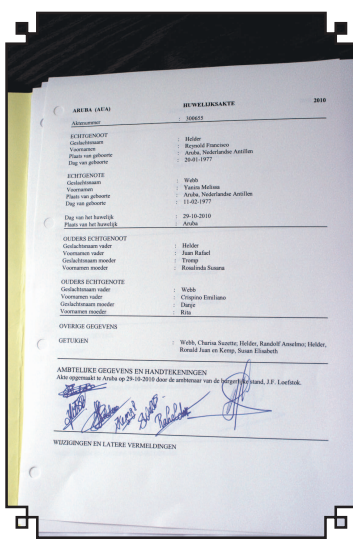 ARUBA (AUA) HUWELIJKSAKTE 2010
Aktenummer : 300655
ECHTGENOOT
Geslachtsnaam : Helder
Voornamen : Reynold Francisco
Plaats van geboorte : Aruba, Nederlandse Antillen
Dag van geboorte : 20-01-1977
ECHTGENOTE
Geslachtsnaam : Webb
Voornamen : Yanira Melissa
Plaats van geboorte : Aruba, Nederlandse Antillen
Dag van geboorte : 11-02-1977
Dag van het huwelijk : 29-10-2010
Plaats van het huwelijk : Aruba
OUDERS ECHTGENOOT
Geslachtsnaam vader : Helder
Voornamen vader : Juan Rafael
Geslachtsnaam moeder : Tromp
Voornamen moeder : Rosalinda Susana
OUDERS ECHTGENOTE
Geslachtsnaam vader : Webb
Voornamen vader : Crispino Emiliano
Geslachtsnaam moeder : Danje
Voornamen moeder : Rita
OVERIGE GEGEVENS
GETUIGEN : Webb, Charisa Suzette; Helder, Randolf Anselmo; Helder,
Ronald Juan en Kemp, Susan Elisabeth
AMBTELIJKE GEGEVENS EN HANDTEKENINGEN
Akte opgemaakt te Aruba op 29-10-2010 door de ambtenaar van de burgerlijke stand, J.F. Loefstok.
WIJZIGINGEN EN LATERE VERMELDINGEN